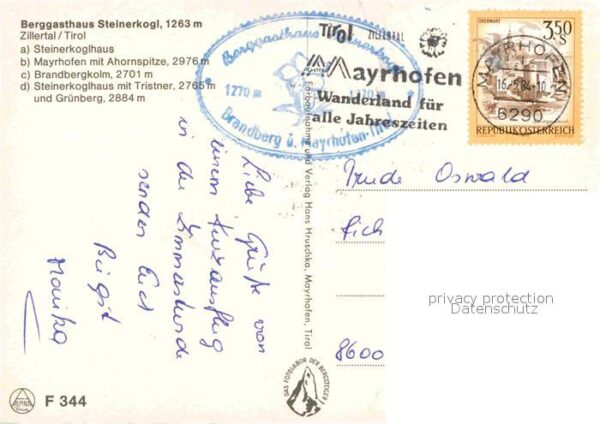 Berggasthaus Steinerkogl, 1263 m
Zillertal / Tirol
a) Steinerkoglhaus
b) Mayrhofen mit Ahornspitze, 2976 m
c) Brandbergkolm, 2701 m
d) Steinerkoglhaus mit Tristner, 2765 m
und Grünberg, 2884 m
Berggasthaus Steinerkogl
1270 m 1270 m
Brandberg ü. Mayrhofen-Tirol
Tirol ZILLERTAL
Mayrhofen
Wanderland für
alle Jahreszeiten
3.50
S
REPUBLIK ÖSTERREICH
MAYRHOFEN
16.-5.84-10
6290
Liebe Grüße von
einem Kurzausflug
in der
senden Euch
Birgit
Monika
Fotoaufnahme und Verlag Hans Hruschka, Mayrhofen, Tirol
DAS FOTOLABOR DER BERGSTEIGER
Trude Oswald
Eich
8600
privacy protection
Datenschutz
F 344